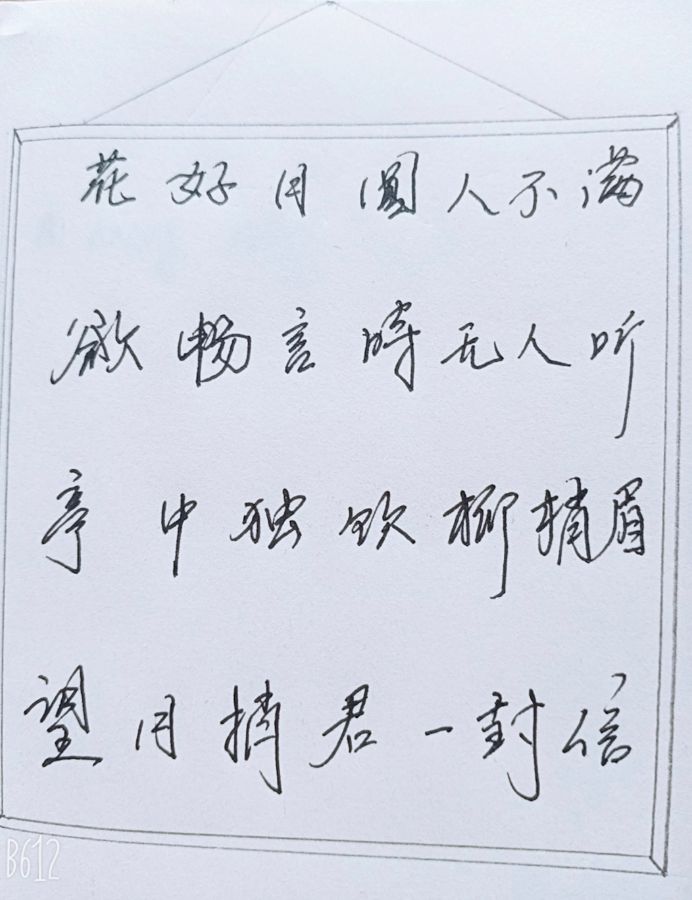 花好月圆人不满
欲畅言时无人听
亭中独饮柳梢眉
望月捎君一封信
B612